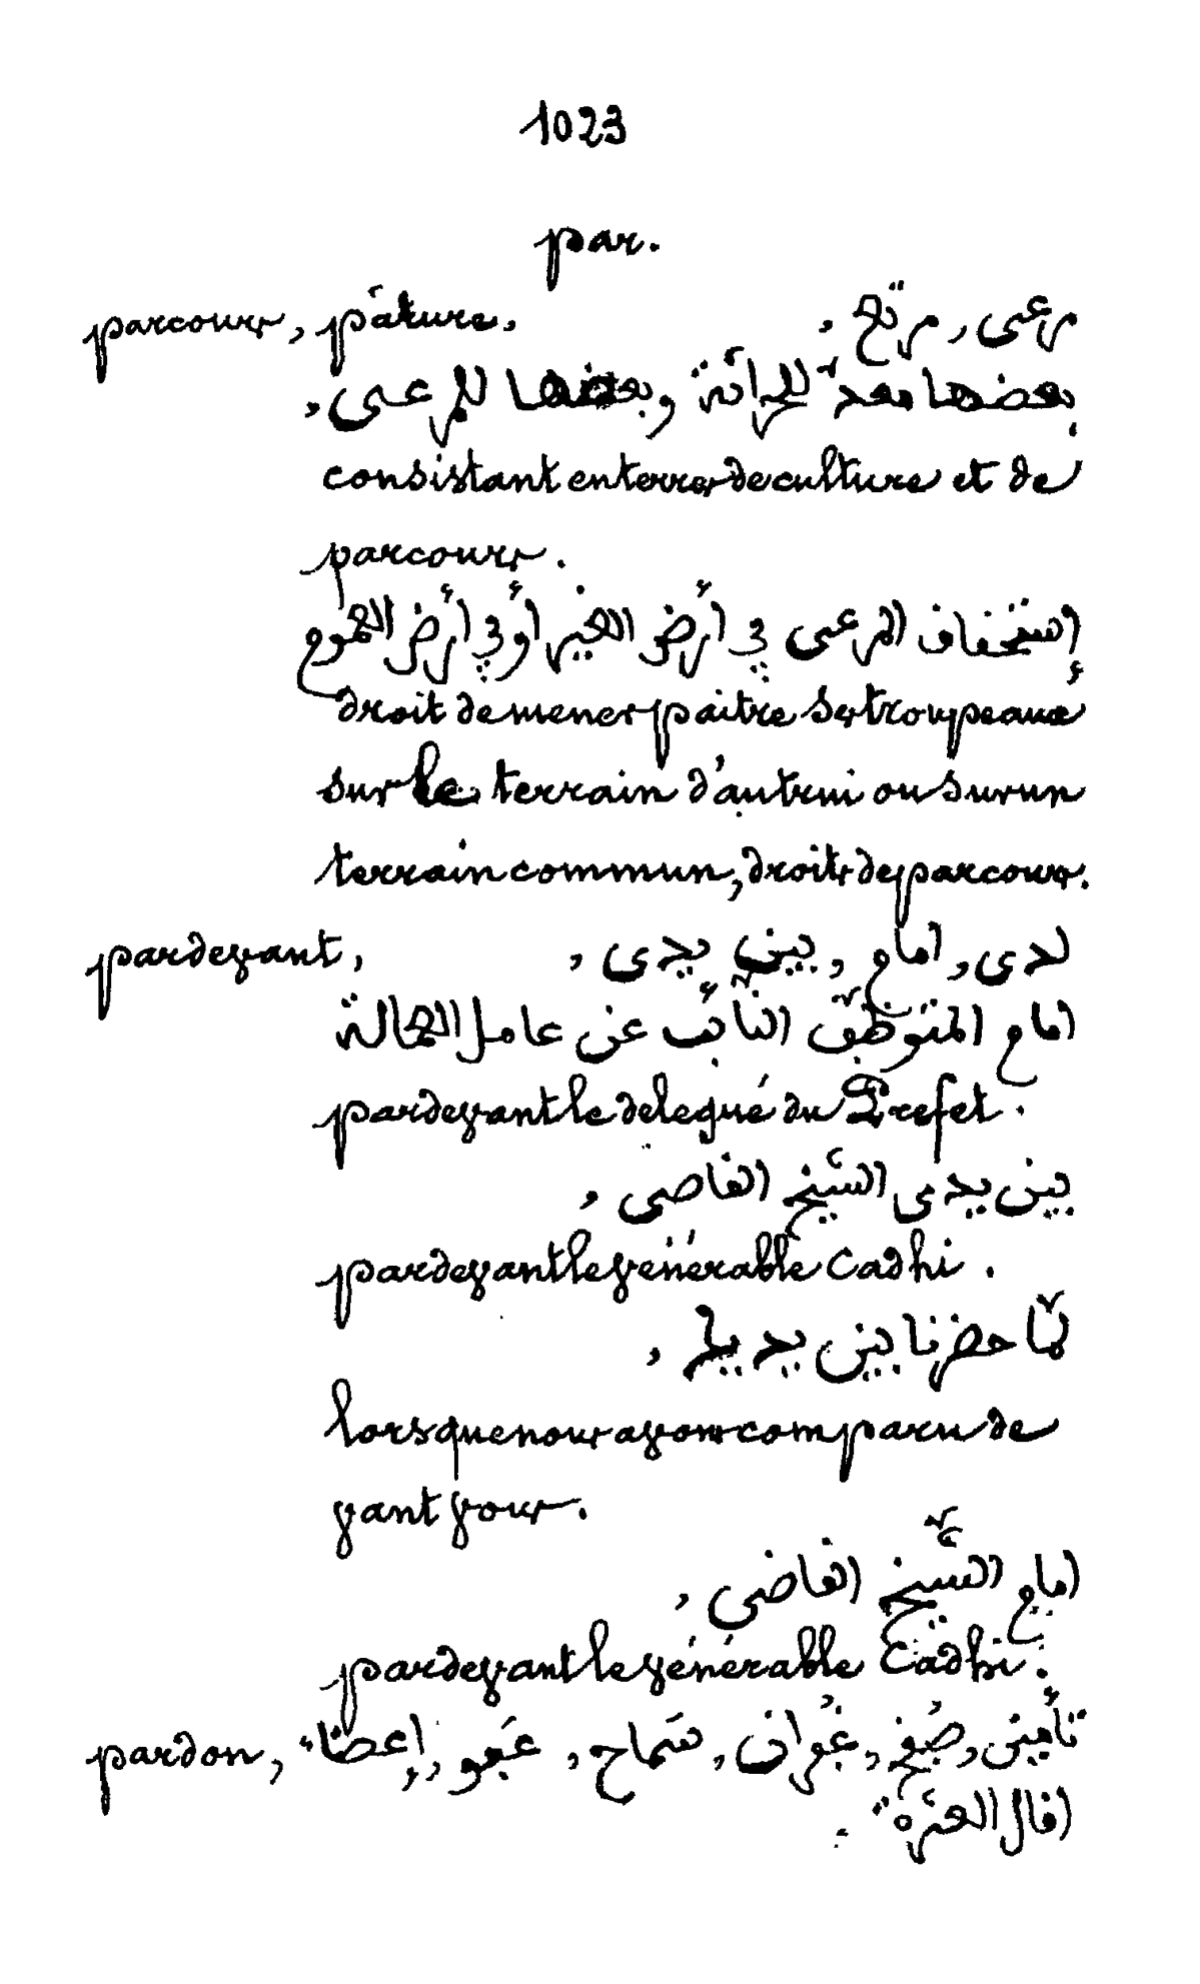 1023
par.
parcours, pâture, مرعى, مرتع,
بعضها معدّ للحراثة وبعضها للمرعى,
consistant en terres de culture et de
parcours.
إستحقاق المرعى في أرض الغير أو في أرض العموم
droit de mener paitre ses troupeaux
sur le terrain d'autrui ou sur un
terrain commun, droits de parcours.
pardevant, لدى, امام, بين يدى,
امام المتوظّف النّائب عن عامل العمالة
pardevant le delegué du Prefet.
بين يدى الشيخ القاصى,
pardevant le vénérable Cadhi.
لمّا حضرنا بين يديك,
lorsque nous avons comparu de
vant vous.
امام الشّيخ القاضى,
pardevant le vénérable Cadhi.
pardon, تأمين, صُفح, غُفران, سَماح, عَفو, إعضا"
اقال العثرة".